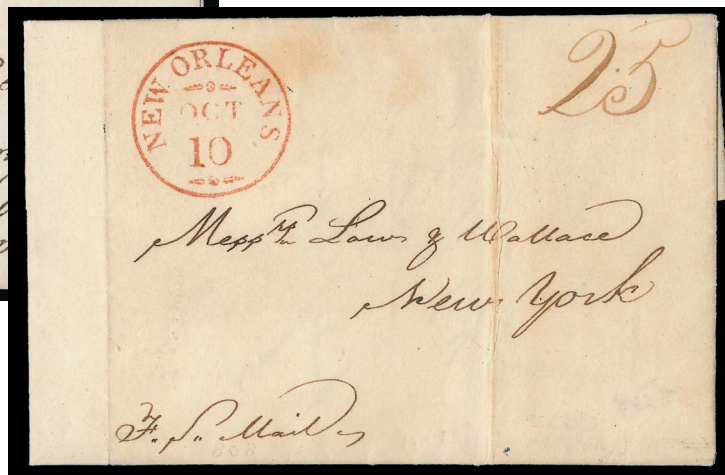 NEW ORLEANS.
OCT
10
25
Mess.rs Laws & Wallace
New York
F. S. Mail